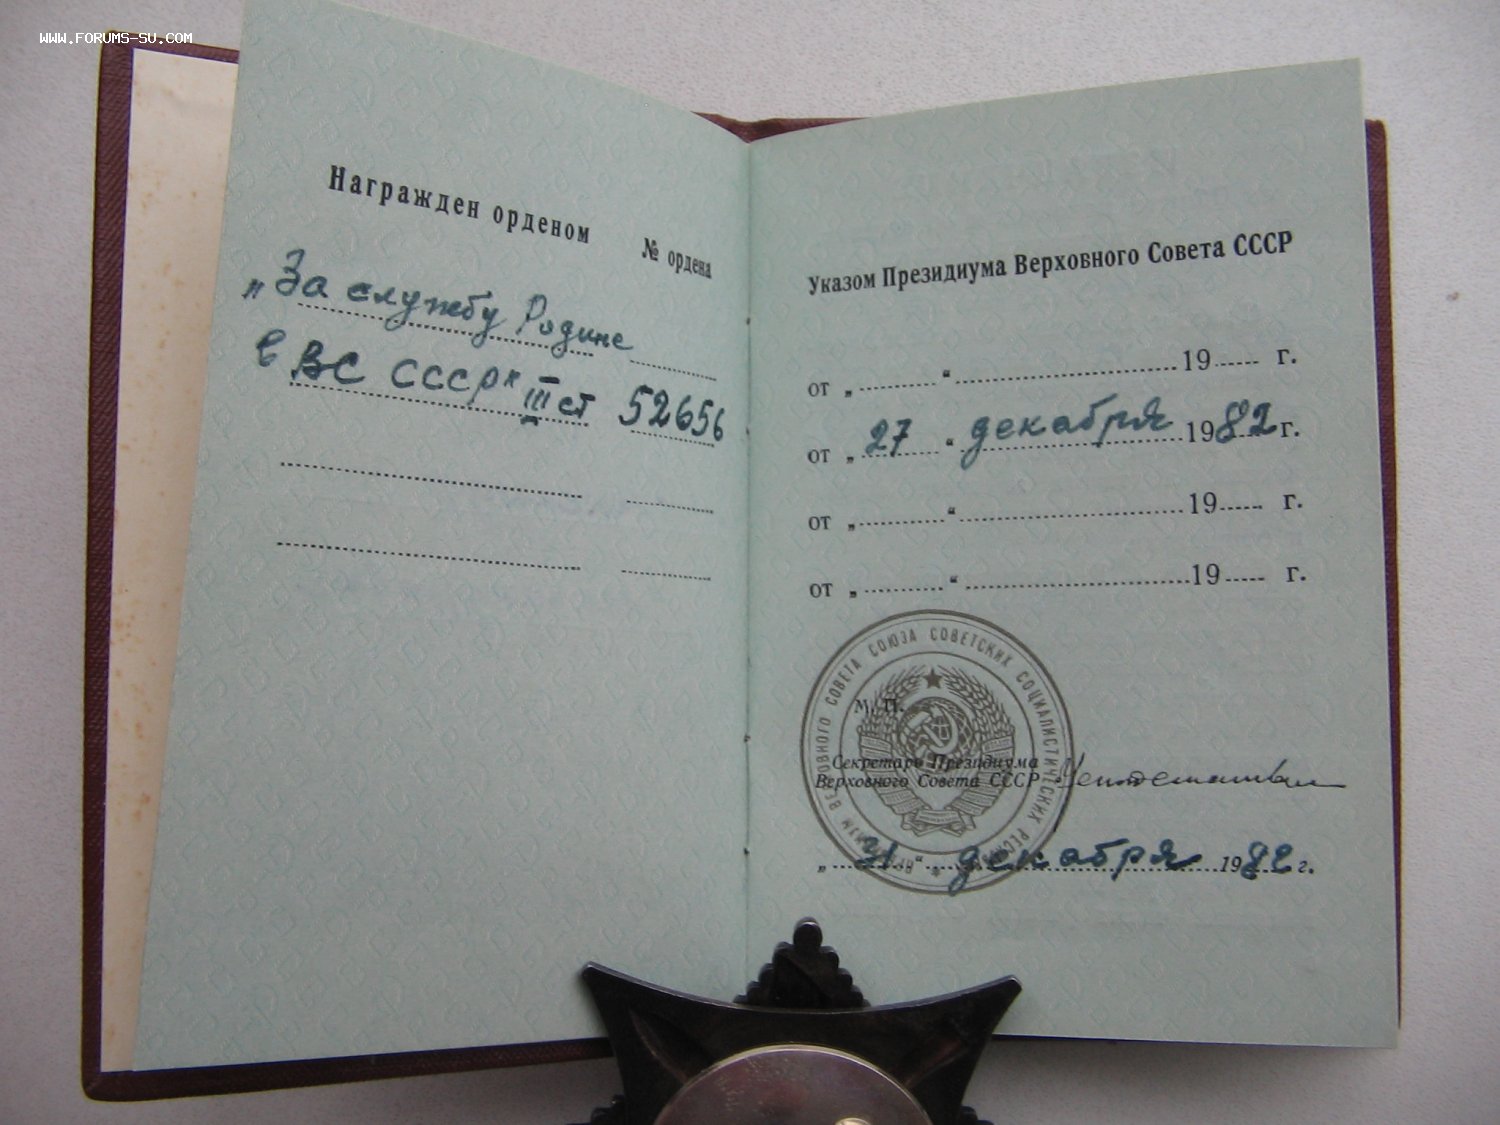 www.forums-su.com
Награжден орденом № ордена
„За службу Родине
в ВС СССР" III ст 52656
Указом Президиума Верховного Совета СССР
от „ “ 19 г.
от „ 27 “ декабря 1982 г.
от „ “ 19 г.
от „ “ 19 г.
ПРЕЗИДИУМ ВЕРХОВНОГО СОВЕТА СОЮЗА СОВЕТСКИХ СОЦИАЛИСТИЧЕСКИХ РЕСПУБЛИК
М. П.
Секретарь Президиума
Верховного Совета СССР
„ 31 “ декабря 1982 г.